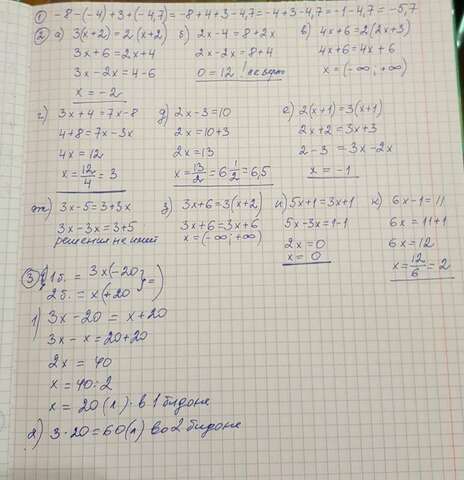 ① -8-(-4)+3+(-4,7)=-8+4+3-4,7=-4+3-4,7=-1-4,7=-5,7
② а) 3(x+2)=2(x+2) б) 2x-4=8+2x в) 4x+6=2(2x+3)
3x+6=2x+4 2x-2x=8+4 4x+6=4x+6
3x-2x=4-6 0=12 ! x=(-∞;+∞)
x=-2
г) 3x+4=7x-8 д) 2x-3=10 е) 2(x+1)=3(x+1)
4+8=7x-3x 2x=10+3 2x+2=3x+3
4x=12 2x=13 2-3=3x-2x
x=12/4=3 x=13/2=6 1/2=6,5 x=-1
ж) 3x-5=3+3x з) 3x+6=3(x+2) и) 5x+1=3x+1 к) 6x-1=11
3x-3x=3+5 3x+6=3x+6 5x-3x=1-1 6x=11+1
решения не имеет x=(-∞;+∞) 2x=0 6x=12
x=0 x=12/6=2
③ 1б. = 3x(-20 } =)
2б. = x(+20
1) 3x-20=x+20
3x-x=20+20
2x=40
x=40:2
x=20(л) в 1 бидоне
2) 3·20=60(л) во 2 бидоне